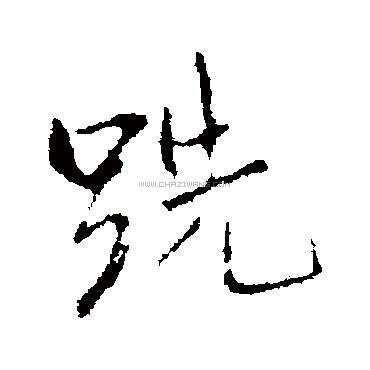 跣
WWW.CHAZIWANG.COM